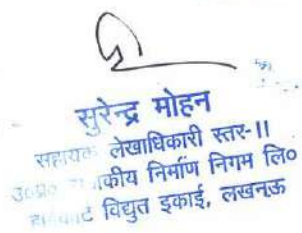 सुरेन्द्र मोहन
सहायक लेखाधिकारी स्तर-II
उ०प्र० कीय निर्माण निगम लि०
विद्युत इकाई, लखनऊ